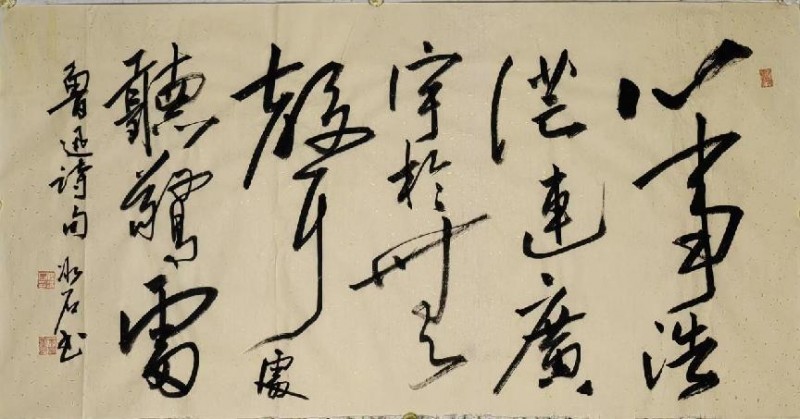 心事浩
茫連廣
宇於無
聲處
聽驚雷
魯迅詩句 冰石书